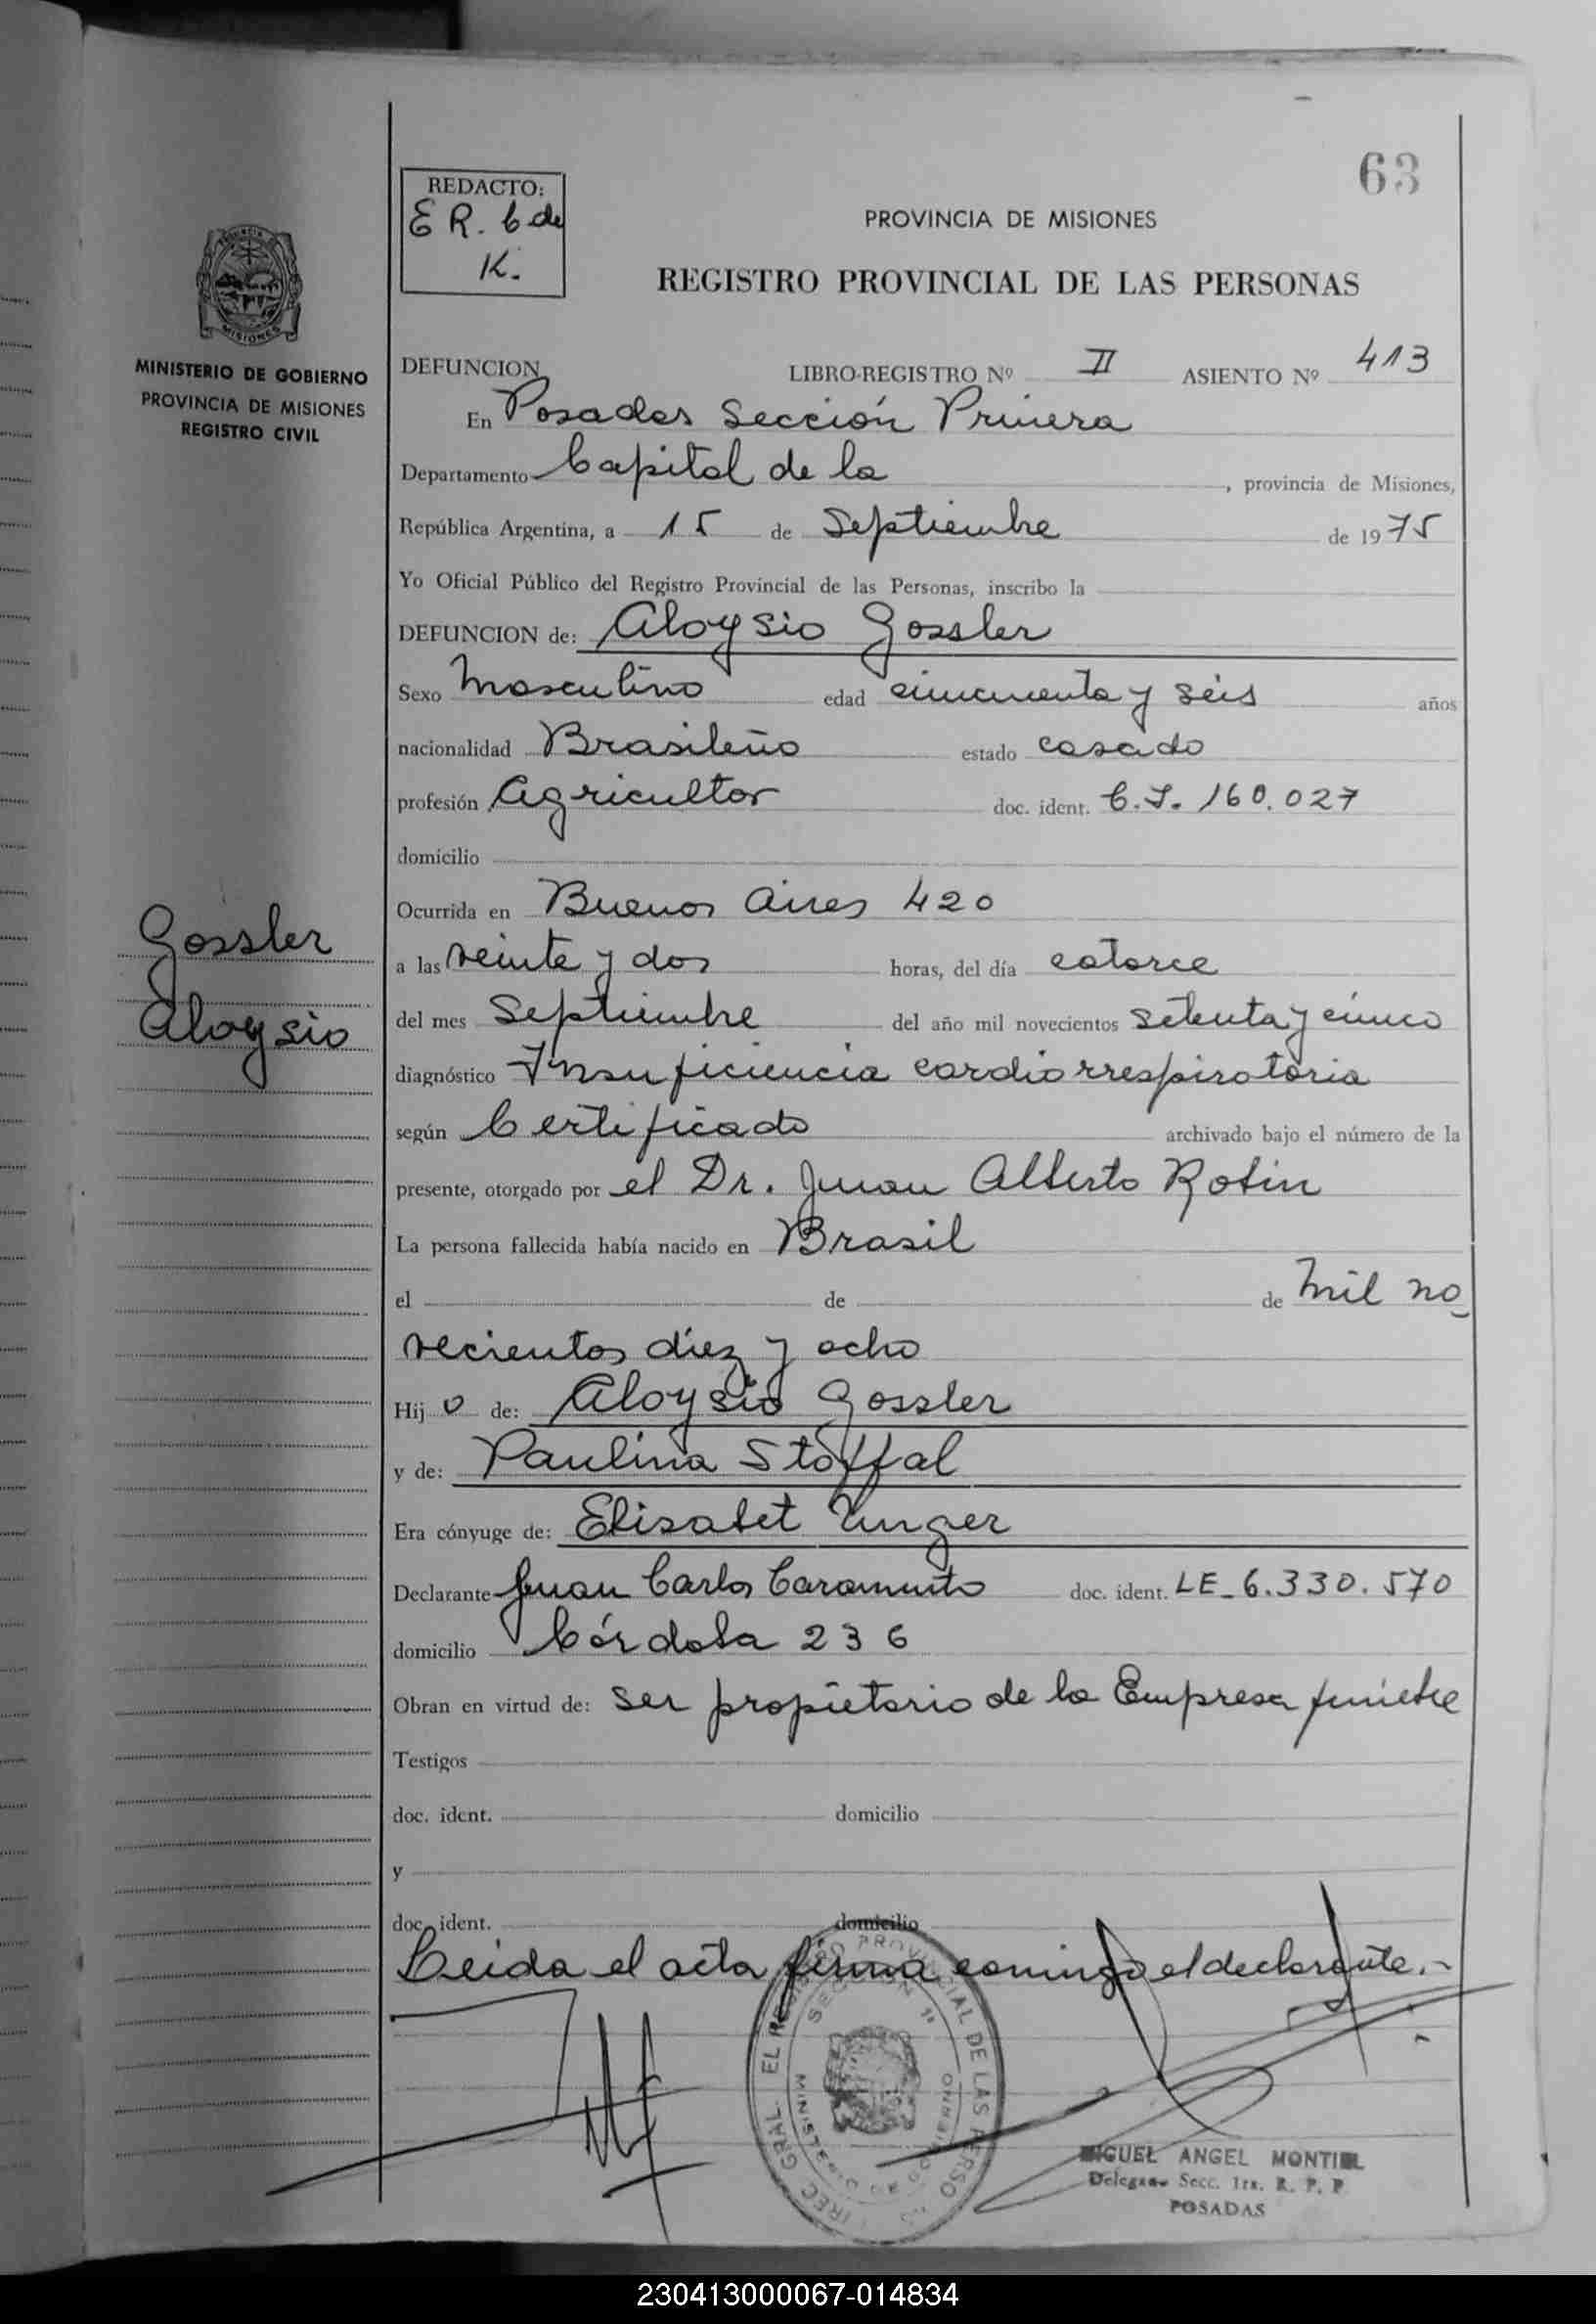 63
REDACTO:
E R. C de
K.
PROVINCIA DE MISIONES
REGISTRO PROVINCIAL DE LAS PERSONAS
MISIONES
MINISTERIO DE GOBIERNO
PROVINCIA DE MISIONES
REGISTRO CIVIL
DEFUNCION LIBRO-REGISTRO Nº II ASIENTO Nº 413
En Posadas Sección Primera
Departamento Capital de la , provincia de Misiones,
República Argentina, a 15 de Septiembre de 1975
Yo Oficial Público del Registro Provincial de las Personas, inscribo la
DEFUNCION de: Aloysio Gossler
Sexo Masculino edad cincuenta y seis años
nacionalidad Brasileño estado casado
profesión Agricultor doc. ident. C.I. 160.027
domicilio
Ocurrida en Buenos Aires 420
Gossler
a las veinte y dos horas, del día catorce
Aloysio
del mes Septiembre del año mil novecientos setenta y cinco
diagnóstico Insuficiencia cardiorrespiratoria
según Certificado archivado bajo el número de la
presente, otorgado por el Dr. Juan Alberto Rotin
La persona fallecida había nacido en Brasil
el de de Mil no_
vecientos diez y ocho
Hij o de: Aloysio Gossler
y de: Paulina Stoffal
Era cónyuge de: Elisabet Unger
Declarante Juan Carlos Caramuto doc. ident. LE_6.330.570
domicilio Córdoba 236
Obran en virtud de: ser propietario de la Empresa funebre
Testigos
doc. ident. domicilio
y
doc. ident. domicilio
Leida el acta firma conmigo el declarante.-
MIGUEL ANGEL MONTIEL
Delegado Secc. 1ra. R. P. P
POSADAS
230413000067-014834